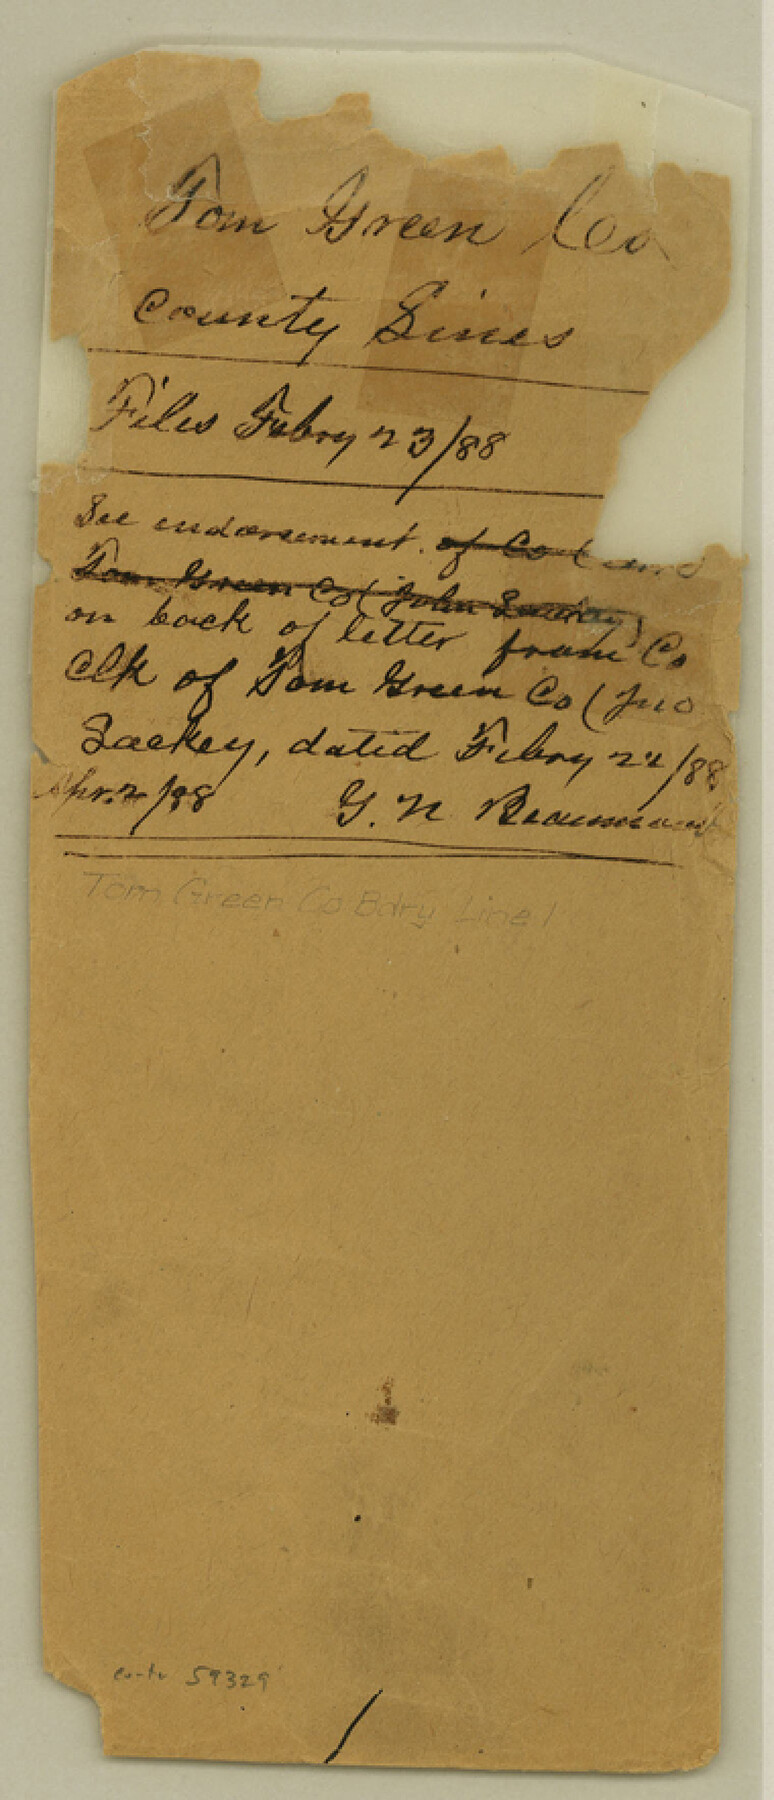 Tom Green Co
County Lines
Files Febry 23/88
See endorsement. of Co (
Tom Green Co (John Lackey)
on back of letter from Co
Clk of Tom Green Co (Jno
Lackey, dated Febry 22/88
Apr. 2/88 G. N Beaumont
Tom Green Co Bdry Line 1
59329